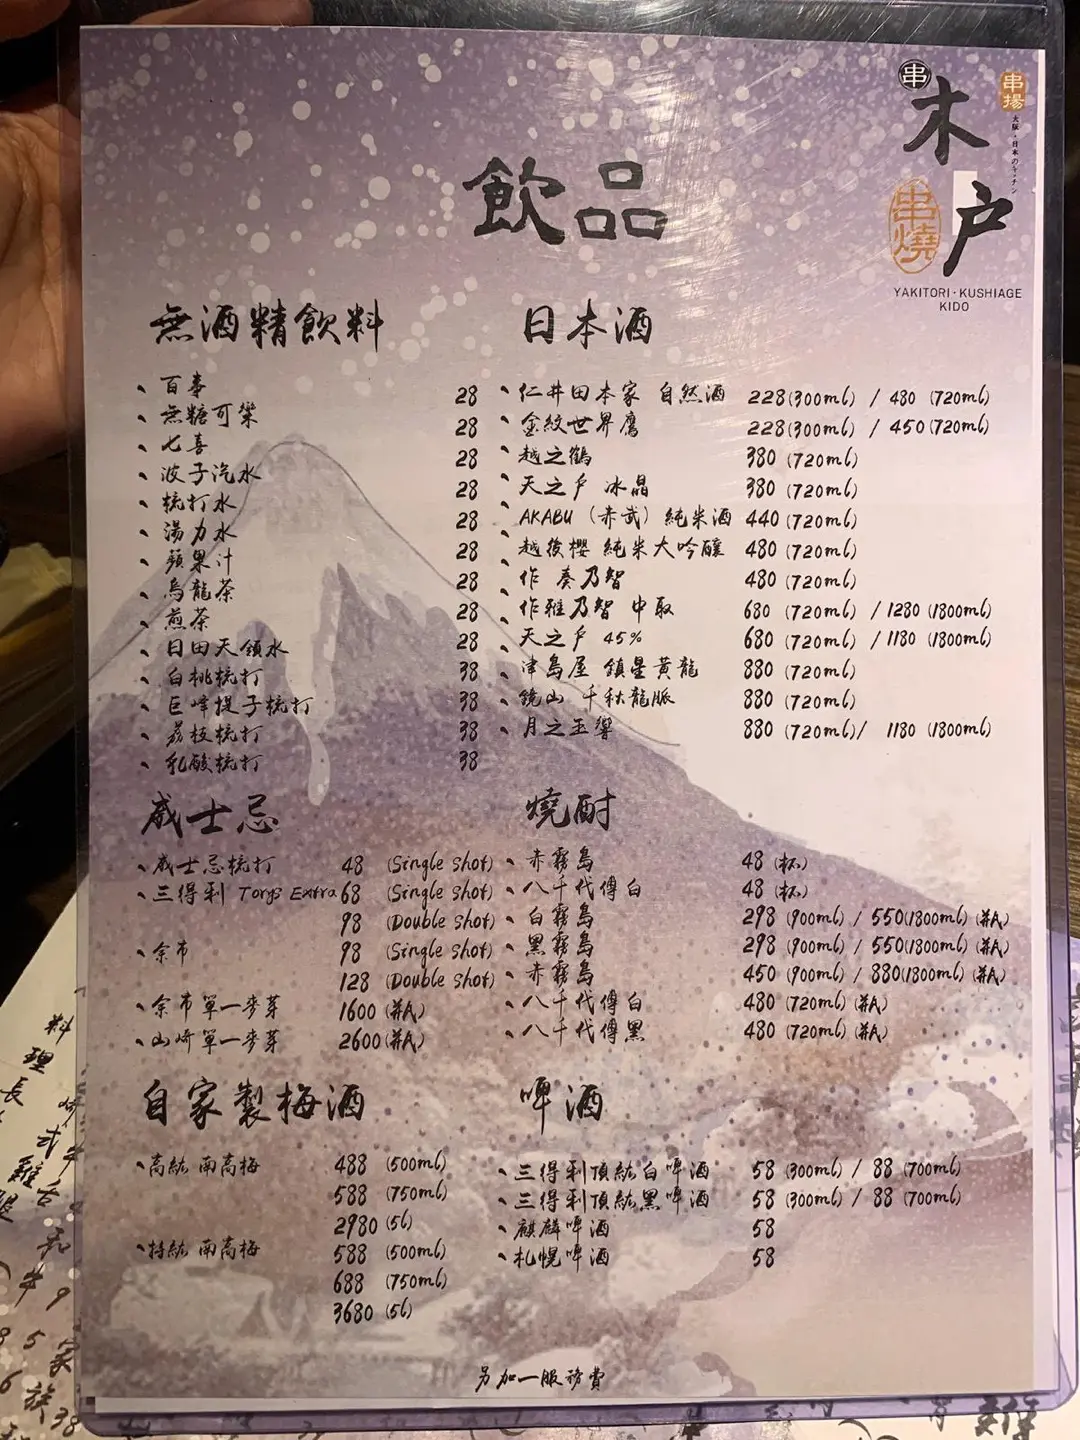 串
木
戶
串揚
大阪・日本のキッチン
串燒
YAKITORI・KUSHIAGE
KIDO
飲品
無酒精飲料
、百事 28
、無糖可樂 28
、七喜 28
、波子汽水 28
、梳打水 28
、湯力水 28
、蘋果汁 28
、烏龍茶 28
、煎茶 28
、日田天領水 38
、白桃梳打 38
、巨峰提子梳打 38
、荔枝梳打 38
、乳酸梳打
日本酒
、仁井田本家 自然酒 228(300ml) / 480 (720ml)
、金紋世界鷹 228(300ml) / 450(720ml)
、越之鶴 380 (720ml)
、天之戶 冰晶 380 (720ml)
、AKABU (赤武) 純米酒 440 (720ml)
、越後櫻 純米大吟釀 480 (720ml)
、作 奏乃智 480 (720ml)
、作雅乃智 中取 680 (720ml) / 1280 (1800ml)
、天之戶 45% 680 (720ml) / 1180 (1800ml)
、津島屋 鎮星黃龍 880 (720ml)
、鏡山 千秋龍脈 880 (720ml)
、月之玉響 880 (720ml)/ 1180 (1800ml)
威士忌
、威士忌梳打 48 (Single Shot)
、三得利 Torys Extra 68 (Single Shot)
98 (Double Shot)
、余市 98 (Single Shot)
128 (Double Shot)
、余市單一麥芽 1600 (支)
、山崎單一麥芽 2600 (支)
燒酎
、赤霧島 48 (杯)
、八千代傳白 48 (杯)
、白霧島 298 (900ml) / 550(1800ml)
、黑霧島 298 (900ml) / 550(1800ml)
、赤霧島 450 (900ml) / 880(1800ml)
、八千代傳白 480 (720ml)
、八千代傳黑 480 (720ml)
自家製梅酒
、高級 南高梅 488 (500ml)
588 (750ml)
2980 (5l)
、特級 南高梅 588 (500ml)
688 (750ml)
3680 (5l)
啤酒
、三得利頂級白啤酒 58 (300ml) / 88 (700ml)
、三得利頂級黑啤酒 58 (300ml) / 88 (700ml)
、麒麟啤酒 58
、札幌啤酒 58
另加一服務費